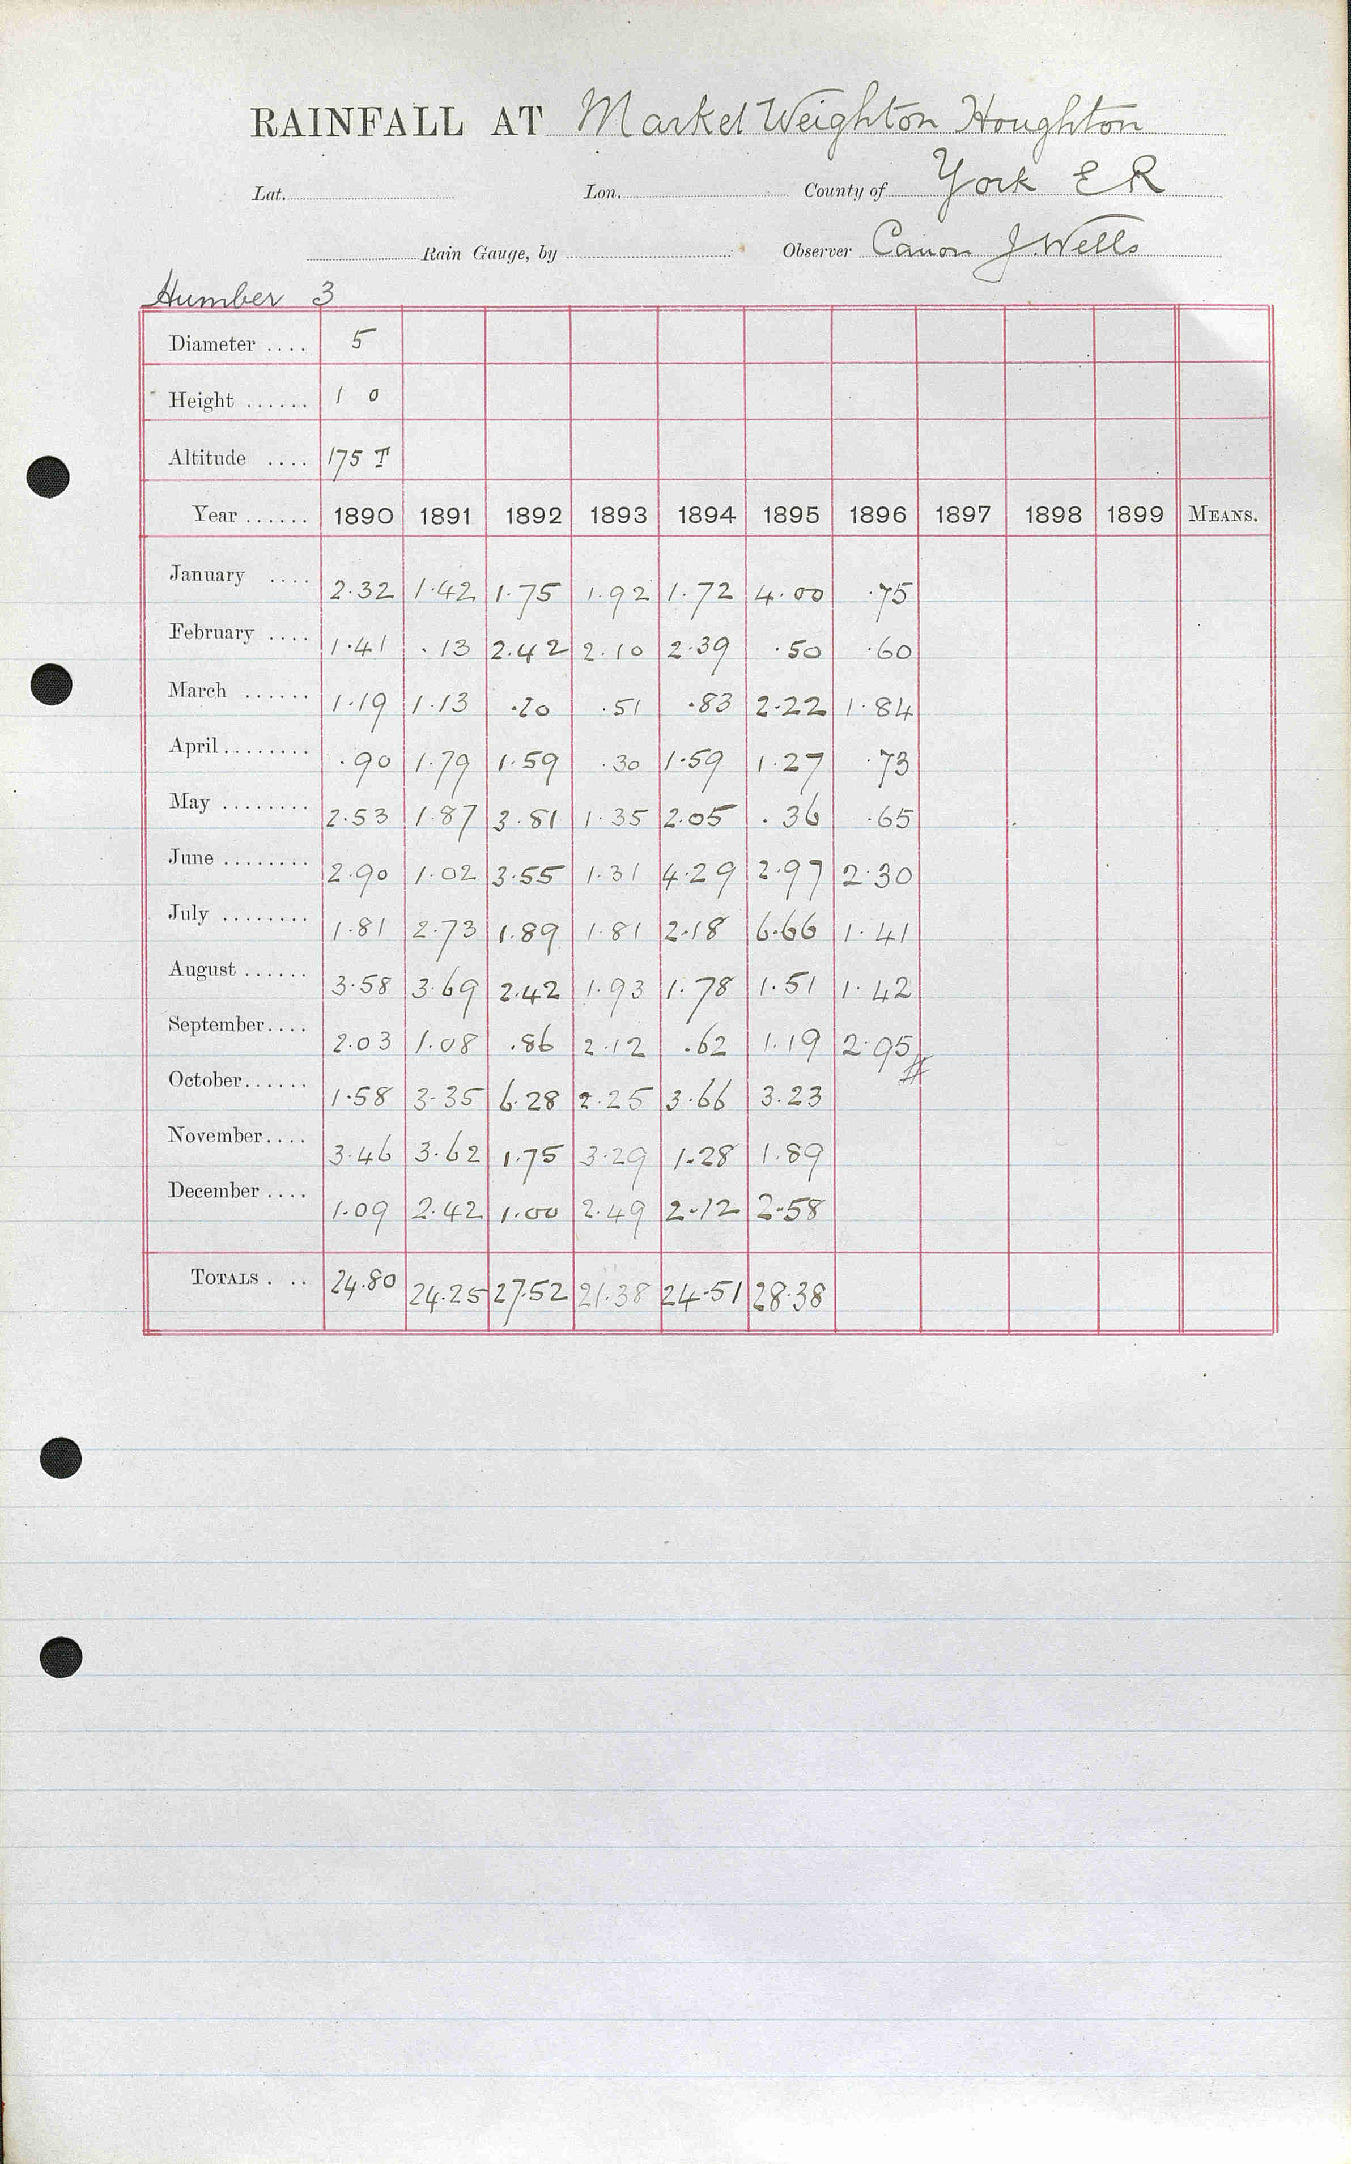 RAINFALL AT Market Weighton Houghton
Lat. Lon. County of York E R
Rain Gauge, by Observer Canon J. Wells
Humber 3
Diameter .... 5
Height ...... 1 0
Altitude .... 175 T
Year ...... 1890 1891 1892 1893 1894 1895 1896 1897 1898 1899 MEANS.
January .... 2.32 1.42 1.75 1.92 1.72 4.00 .75
February .... 1.41 .13 2.42 2.10 2.39 .50 .60
March ...... 1.19 1.13 .20 .51 .83 2.22 1.84
April ........ .90 1.79 1.59 .30 1.59 1.27 .73
May ........ 2.53 1.87 3.81 1.35 2.05 .36 .65
June ........ 2.90 1.02 3.55 1.31 4.29 2.97 2.30
July ........ 1.81 2.73 1.89 1.81 2.18 6.66 1.41
August ...... 3.58 3.69 2.42 1.93 1.78 1.51 1.42
September.... 2.03 1.08 .86 2.12 .62 1.19 2.95 #
October...... 1.58 3.35 6.28 2.25 3.66 3.23
November.... 3.46 3.62 1.75 3.29 1.28 1.89
December .... 1.09 2.42 1.00 2.49 2.12 2.58
TOTALS . .. 24.80 24.25 27.52 21.38 24.51 28.38